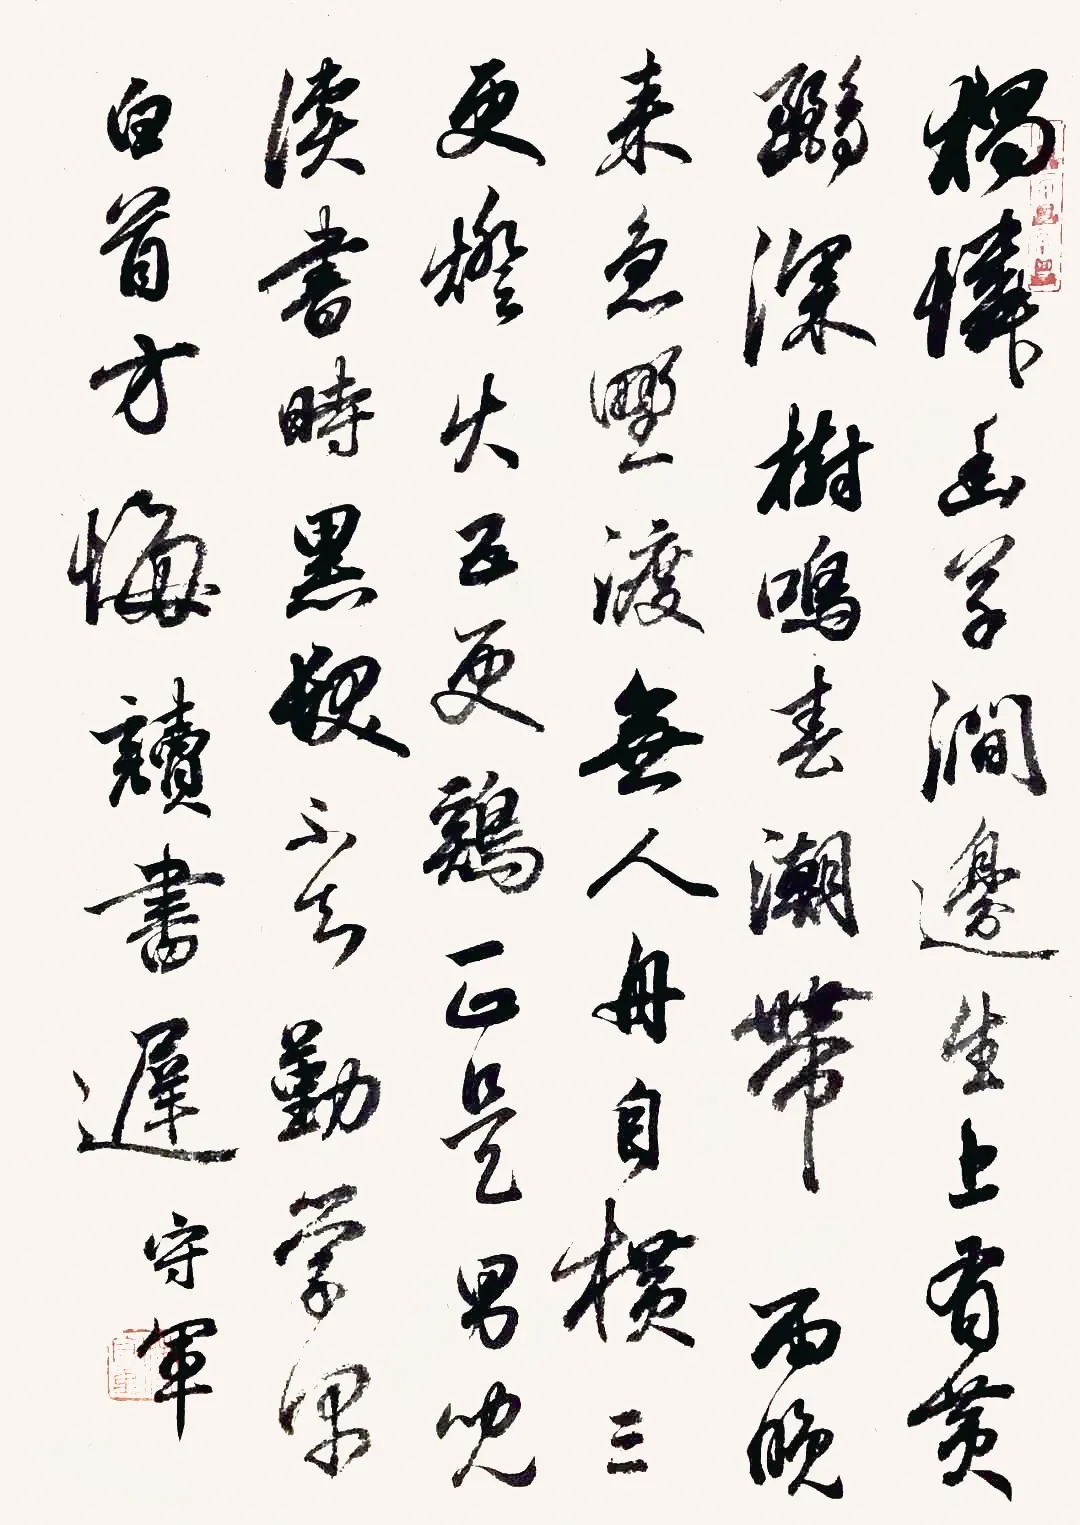 獨憐幽草澗邊生上有黄
鸝深樹鳴春潮帶雨晚
来急野渡無人舟自横三
更燈火五更鷄正是男兒
读書時黑髮不知勤学
白首方悔讀書遲 守軍